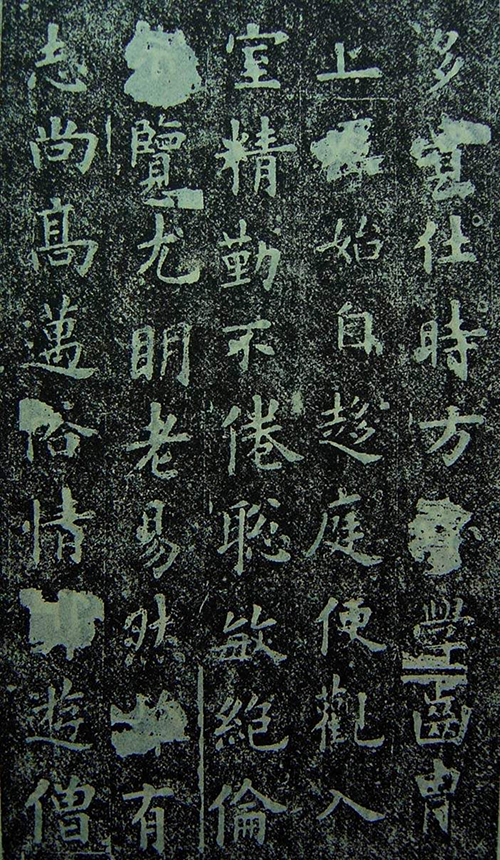 多仕時方學齒胄
上始自趍庭便觀入
室精勤不倦聡敏絕倫
覽尤明老易然有
志尚高邁俗情遊僧